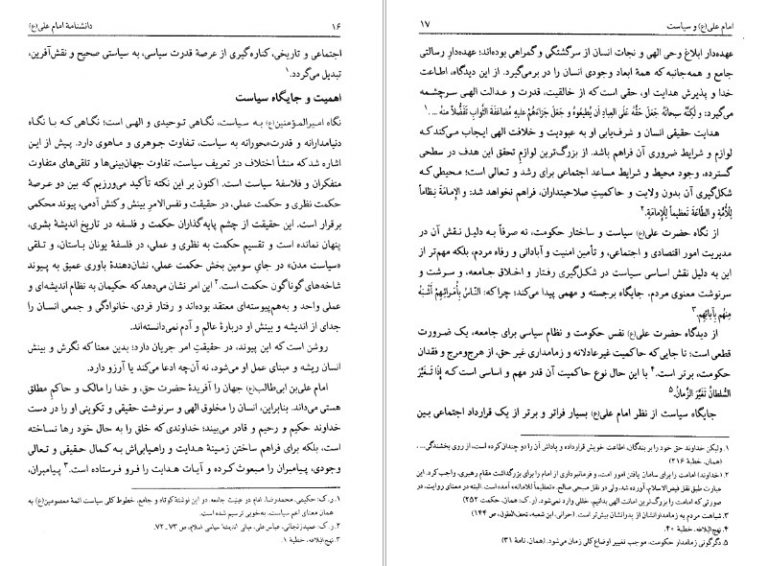 ۱۶ دانشنامهٔ امام علی(ع)
اجتماعی و تاریخی، کناره‌گیری از عرصهٔ قدرت سیاسی، به سیاستی صحیح و نقش‌آفرین،
تبدیل می‌گردد.۱
اهمیت و جایگاه سیاست
نگاه امیرالمؤمنین(ع) به سیاست، نگاهی توحیدی و الهی است؛ نگاهی که با نگاه
دنیامدارانه و قدرت‌محورانه به سیاست، تفاوت جوهری و ماهوی دارد. پیش از این
اشاره شد که منشأ اختلاف در تعریف سیاست، تفاوت جهان‌بینی‌ها و تلقی‌های متفاوت
متفکران و فلاسفهٔ سیاست است. اکنون بر این نکته تأکید می‌ورزیم که بین دو عرصهٔ
حکمت نظری و حکمت عملی، در حقیقت و نفس‌الامرِ بینش و کنش آدمی، پیوند محکمی
برقرار است. این حقیقت از چشم پایه‌گذاران حکمت و فلسفه در تاریخ اندیشهٔ بشری،
پنهان نمانده است و تقسیم حکمت به نظری و عملی، در فلسفهٔ یونان باستان، و تلقی
«سیاست مدن» در جای سومین بخش حکمت عملی، نشان‌دهندهٔ باوری عمیق به پیوند
شاخه‌های گوناگون حکمت است.۲ این امر نشان می‌دهد که حکیمان به نظام اندیشه‌ای و
عملی واحد و به‌هم‌پیوسته‌ای معتقد بوده‌اند و رفتار فردی، خانوادگی و جمعی انسان را
جدای از اندیشه و بینش او دربارهٔ عالم و آدم نمی‌دانسته‌اند.
روشن است که این پیوند، در حقیقتِ امر جریان دارد؛ بدین معنا که نگرش و بینش
انسان ریشه و مبنای عمل او می‌شود، نه آن‌چه ادعا می‌کند یا آرزو دارد.
امام علی‌بن ابی‌طالب(ع) جهان را آفریدهٔ حضرت حق، و خدا را مالک و حاکم مطلق
هستی می‌داند. بنابراین، انسان را مخلوق الهی و سرنوشت حقیقی و تکوینی او را در دست
خداوند حکیم و رحیم و قادر می‌بیند؛ خداوندی که خلق را به حال خود رها نساخته
است، بلکه برای فراهم ساختن زمینهٔ هدایت و راهیابی‌اش به کمال حقیقی و تعالی
وجودی، پیامبران را مبعوث کرده و آیات هدایت را فرو فرستاده است.۳ پیامبران،
۱. ر.ک: حکیمی، محمدرضا، امام در عینیت جامعه. در این نوشتهٔ کوتاه و جامع، خطوط کلی سیاست ائمهٔ معصومین(ع) به
همان معنای اعم سیاست، به‌خوبی ترسیم شده است.
۲. ر.ک: عمیدزنجانی، عباس‌علی، مبانی اندیشهٔ سیاسی اسلام، ص ۷۳ـ۷۲.
۳. نهج‌البلاغه، خطبهٔ ۱.
امام علی(ع) و سیاست ۱۷
عهده‌دار ابلاغ وحی الهی و نجات انسان از سرگشتگی و گمراهی بوده‌اند؛ عهده‌دارِ رسالتی
جامع و همه‌جانبه که همهٔ ابعاد وجودی انسان را در برمی‌گیرد. از این دیدگاه، اطاعت
خدا و پذیرش هدایت او، حقی است که از خالقیت، قدرت و عدالت الهی سرچشمه
می‌گیرد: و لکِنَّهُ سبحانَهُ جَعَلَ حَقَّهُ عَلَی العِبادِ أَن یُطیعُوهُ وَ جَعَلَ جَزاءَهُم عَلَیهِ مُضاعَفَةَ الثَّوابِ تَفَضُّلاً مِنهُ ... .۱
هدایت حقیقی انسان و شرف‌یابی او به عبودیت و خلافت الهی ایجاب می‌کند که
لوازم و شرایط ضروری آن فراهم باشد. از بزرگ‌ترین لوازم تحقق این هدف در سطحی
گسترده، وجود محیط و شرایط مساعد اجتماعی برای رشد و تعالی است؛ محیطی که
شکل‌گیری آن بدون ولایت و حاکمیت صلاحیتداران، فراهم نخواهد شد: و الإِمامَةَ نِظاماً
لِلأُمَّةِ وَ الطّاعَةَ تَعظیماً لِلإِمامَةِ.۲
از نگاه حضرت علی(ع) سیاست و ساختار حکومت، نه صرفاً به دلیل نقش آن در
مدیریت امور اقتصادی و اجتماعی، و تأمین امنیت و آبادانی و رفاه مردم، بلکه مهم‌تر از
این به دلیل نقش اساسی سیاست در شکل‌گیری رفتار و اخلاق جامعه، و سرشت و
سرنوشت معنوی مردم، جایگاه برجسته و مهمی پیدا می‌کند؛ چرا که: النّاسُ بِأُمَرائِهِم أَشبَهُ
مِنهُم بِآبائِهِم.۳
از دیدگاه حضرت علی(ع) نفس حکومت و نظام سیاسی برای جامعه، یک ضرورت
قطعی است؛ تا جایی که حاکمیت غیرعادلانه و زمامداری غیر حق، از هرج‌ومرج و فقدان
حکومت، برتر است.۴ با این حال نوع حاکمیت آن قدر مهم و اساسی است که إِذَا تَغَیَّرَ
السُّلطانُ تَغَیَّرَ الزَّمانُ.۵
جایگاه سیاست از نظر امام علی(ع) بسیار فراتر و برتر از یک قرارداد اجتماعی بین
۱. ولیکن خداوند حق خود را بر بندگان، اطاعت خویش قرارداده و پاداش آن را دوچندان کرده است، از روی بخشندگی...
(همان، خطبهٔ ۲۱۶)
۲. (خداوند) امامت را برای سامان یافتن امور امت، و فرمانبرداری از امام را برای بزرگداشت مقام رهبری، واجب کرد. این
عبارت طبق نقل فیض‌الاسلام، آورده شد. ولی در نقل صبحی صالح «تعظیماً للامامه» آمده است. البته در معنای روایت، در
صورتی که امامت را بزرگ‌ترین امانت الهی بدانیم، خللی وارد نمی‌شود. (ر.ک: همان، حکمت ۲۵۲)
۳. شباهت مردم به زمامدارانشان از پدرانشان بیش‌تر است. (حرانی، ابن شعبه، تحف‌العقول، ص ۱۴۴)
۴. نهج‌البلاغه، خطبهٔ ۴۰.
۵. دگرگونی زمامدار حکومت، موجب تغییر اوضاع کلی زمان می‌شود. (همان، نامهٔ ۳۱)